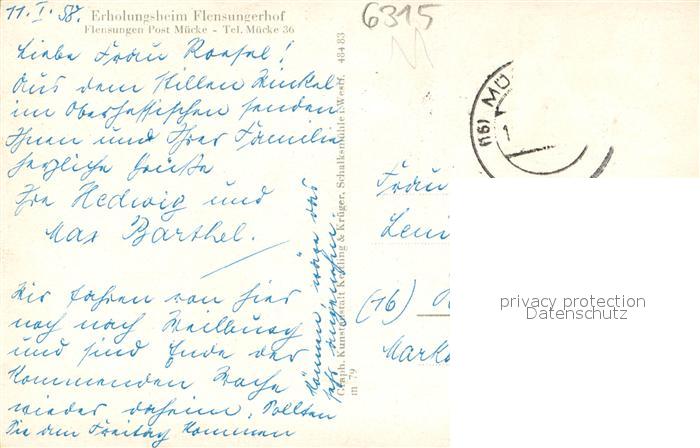 11. I. 58.
Erholungsheim Flensungerhof
Flensungen Post Mücke - Tel. Mücke 36
6315
M
Liebe Frau Roesel!
Aus dem stillen Winkel
im Oberhessischen senden
Ihnen und Ihrer Familie
herzliche Grüße
Ihre Hedwig und
Max Barthel.
Wir fahren von hier
noch nach Weilburg
und sind Ende der
kommenden Woche
wieder daheim. Sollten
Sie am Freitag kommen
können, wäre das
sehr angenehm.
Graph. Kunstanstalt Kettling & Krüger, Schalksmühle i. Westf. 484 83
m 79
(16) MÜ
Frau
Leni
(16)
Marko
privacy protection
Datenschutz